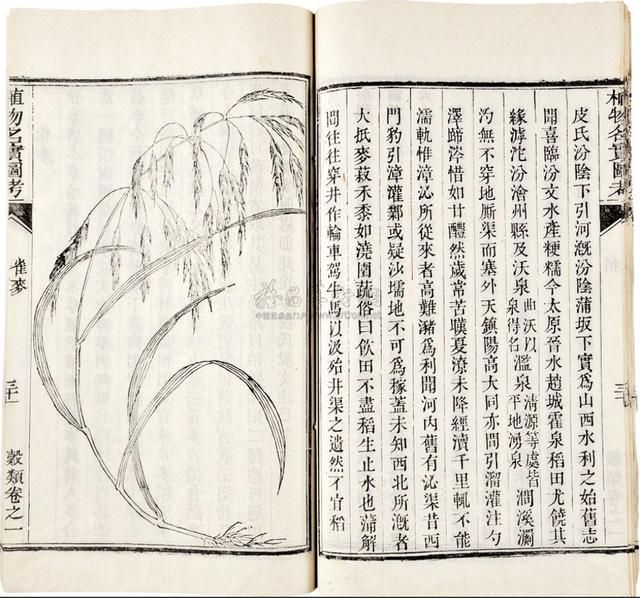 植物名實圖考
皮氏汾陰下引河漑汾陰蒲坂下實爲山西水利之始舊志
聞喜臨汾文水產粳糯今太原晉水趙城霍泉稻田尤饒其
緣滹沱汾澮州縣及沃泉曲沃以泉得名濫泉清源等處皆平地湧泉澗溪瀾
汋無不穿地厮渠而塞外天鎮陽高大同亦間引溜灌注勺
澤蹄涔惜如甘醴然歲常苦嘆夏潦未降經瀆千里輒不能
濡軌惟漳沁所從來者高難瀦爲利聞河內舊有沁渠昔西
門豹引漳灌鄴或疑沙壖地不可爲稼蓋未知西北所漑者
大抵麥菽禾黍如澆園蔬俗曰飮田不盡稻生止水也蒲解
間往往穿井作輪車駕牛馬以汲殆井渠之遺然不宜稻
植物名實圖考
雀麥
穀類卷之一